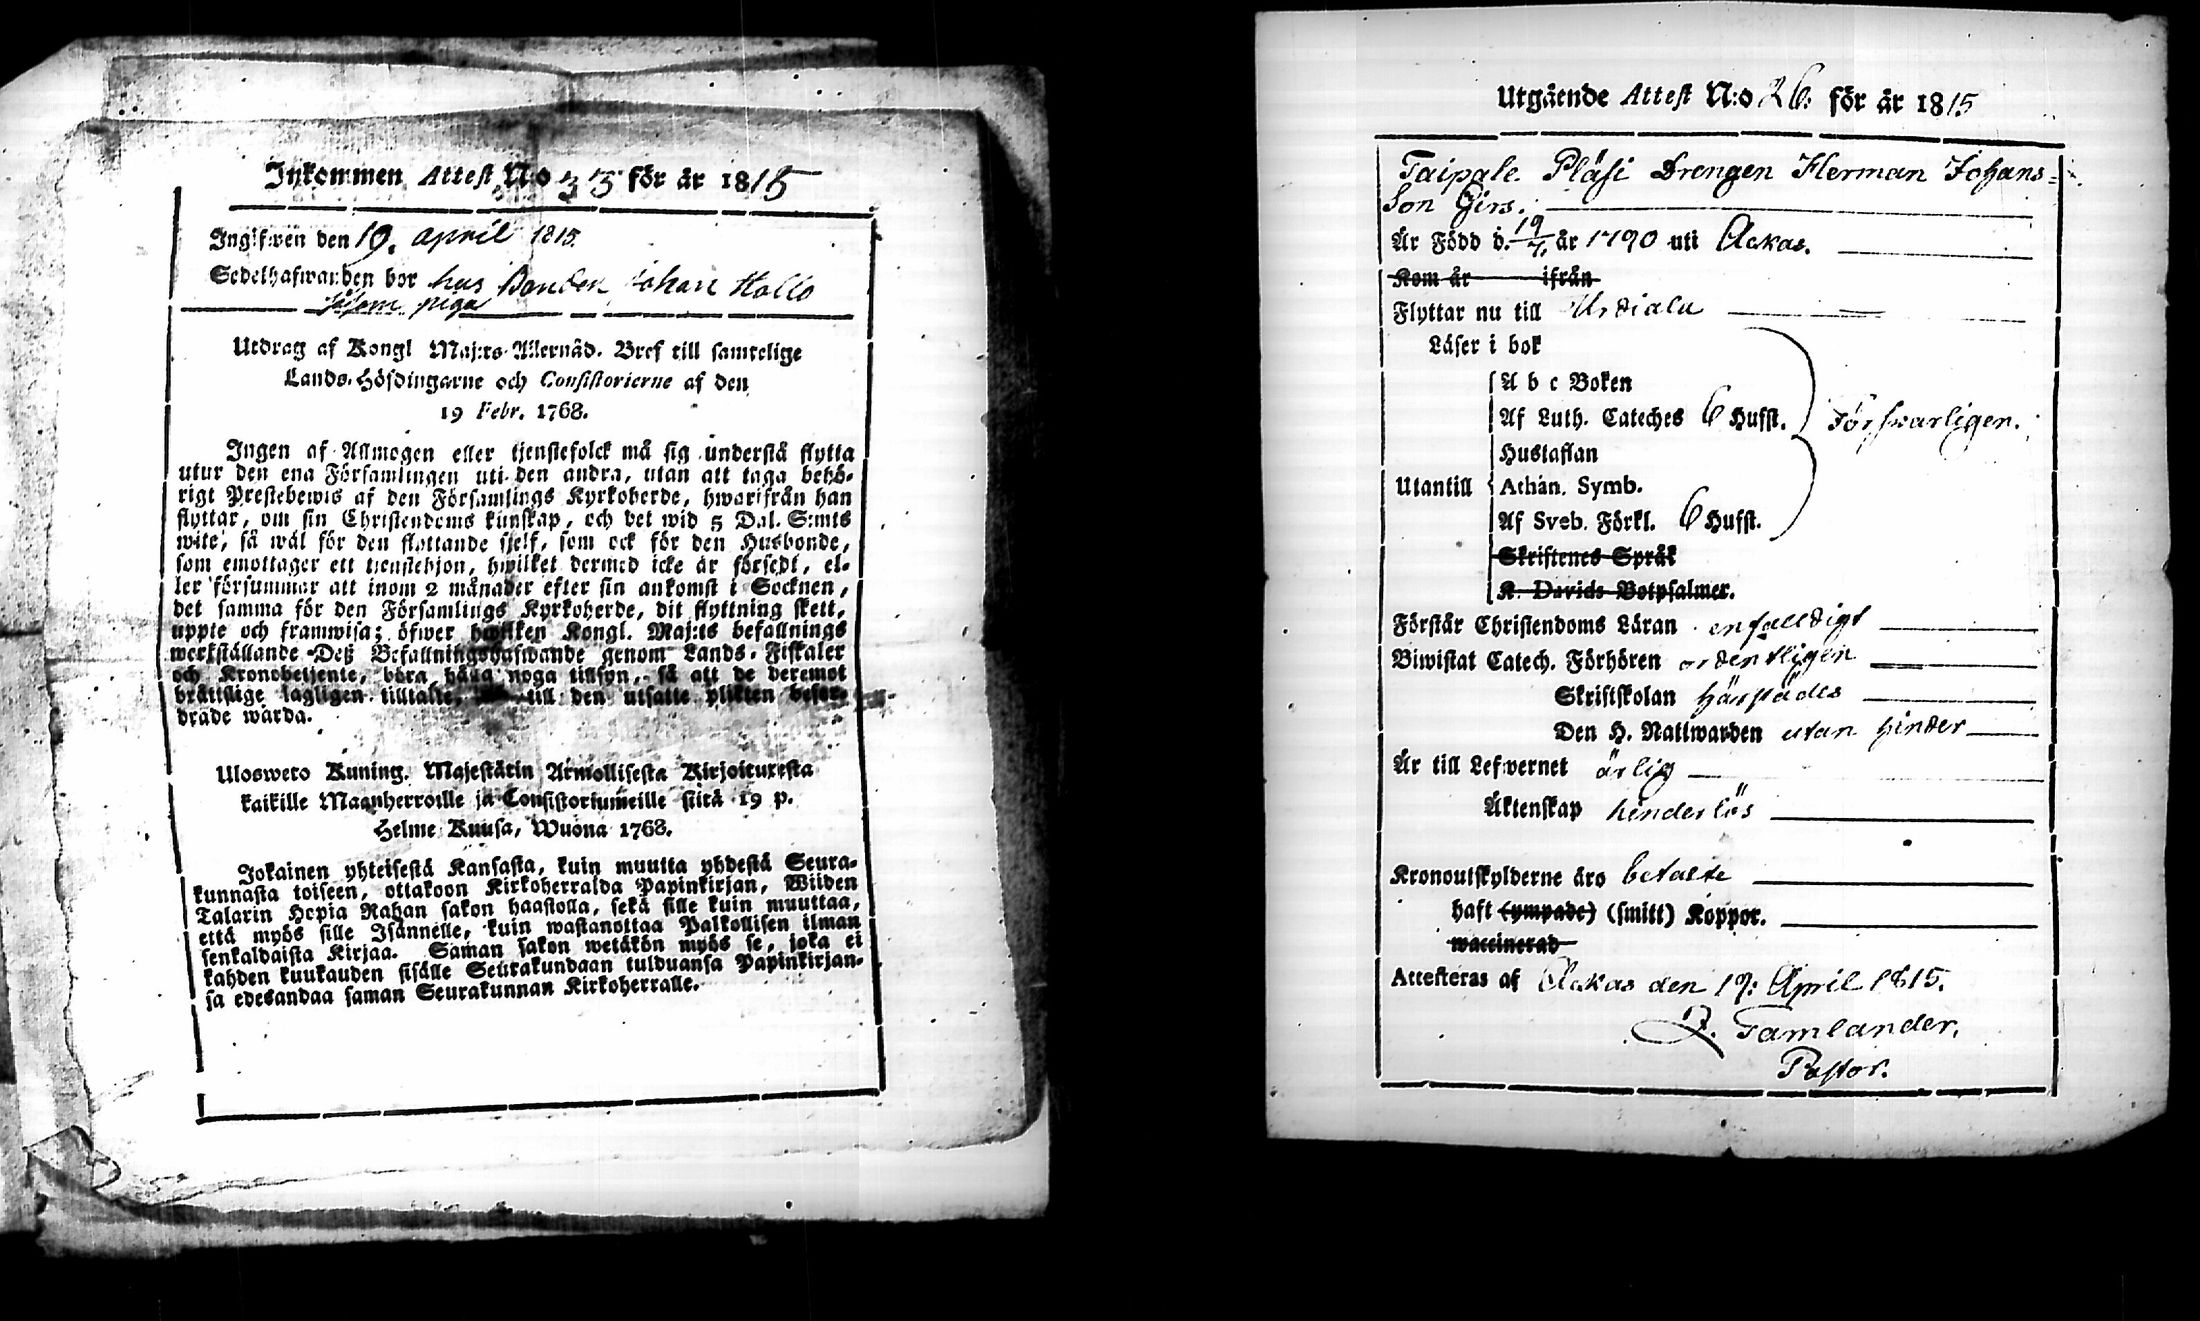 Inkommen Attest No 33 för år 1815
Ingifwen den 19. april 1815.
Sedelhafwanden bor hus Bonden Johan Kollo
såsom piga
Utdrag af Kongl Maj:ts Allernåd. Bref till samtelige
Lands-Höfdingarne och Consistorierne af den
19 Febr. 1768.
Ingen af Allmogen eller tjenstefolck må sig understå flytta
utur den ena Församlingen uti den andra, utan att taga behö-
rigt Prestebewis af den Församlings Kyrkoherde, hwarifrån han
flyttar, om sin Christendoms kunskap, och det wid 5 Dal. S:mts
wite, så wäl för den flyttande sjelf, som ock för den Husbonde,
som emottager ett tjenstehjon, hwilket dermed icke är försedt, el-
ler försummar att inom 2 månader efter sin ankomst i Socknen,
det samma för den Församlings Kyrkoherde, dit flyttning skett,
uppte och framwisa; öfwer hwilken Kongl. Maj:ts befallnings
werkställande Deß Befallningshafwande genom Lands-Fiskaler
och Kronobetjente, böra hafwa noga tillsyn, så att de deremot
bråttslige lagligen tilltalte, till den utsatte plikten befor-
drade warda.
Ulosweto Kuning. Majestätin Armollisesta Kirjoituxesta
kaikille Maanherroille ja Consistoriumeille siitä 19 p.
Helme Kuusa, Wuona 1768.
Jokainen yhteisestä Kansasta, kuin muutta yhdestä Seura-
kunnasta toiseen, ottakoon Kirkoherralda Papinkirjan, Wiiden
Talarin Hopia Rahan sakon haastolla, sekä sille kuin muuttaa,
että myös sille Isännelle, kuin wastanottaa Palkollisen ilman
senkaldaista Kirjaa. Saman sakon wetäkön myös se, joka ei
kahden kuukauden sisälle Seurakundaan tulduansa Papinkirjan-
sa edesandaa saman Seurakunnan Kirkoherralle.
Utgående Attest N:o 26: för år 1815
Taipale Pläsi Drengen Herman Johans-
Son Girs.
Är Född d. 19/7. år 1790 uti Ackas.
Kom år ifrån
Flyttar nu till Urdiala
Läser i bok
A b c Boken
Af Luth. Cateches 6 Hufst. Försvarligen.
Hustaflan
Utantill Athan. Symb.
Af Sveb. Förkl. 6 Hufst.
Skriftenes Språk
K. Davids Botpsalmer.
Förstår Christendoms Läran enfalldigt
Biwistat Catech. Förhören ordentligen
Skriftskolan härstädes
Den H. Nattwarden utan hinder
Är till Lefwernet ärlig
Äktenskap hinderlös
Kronoutskylderne äro betalte
haft (ympade) (smitt) Koppor.
waccinerad
Attesteras af Ackas den 19: April 1815.
J. Tamlander,
Pastor.